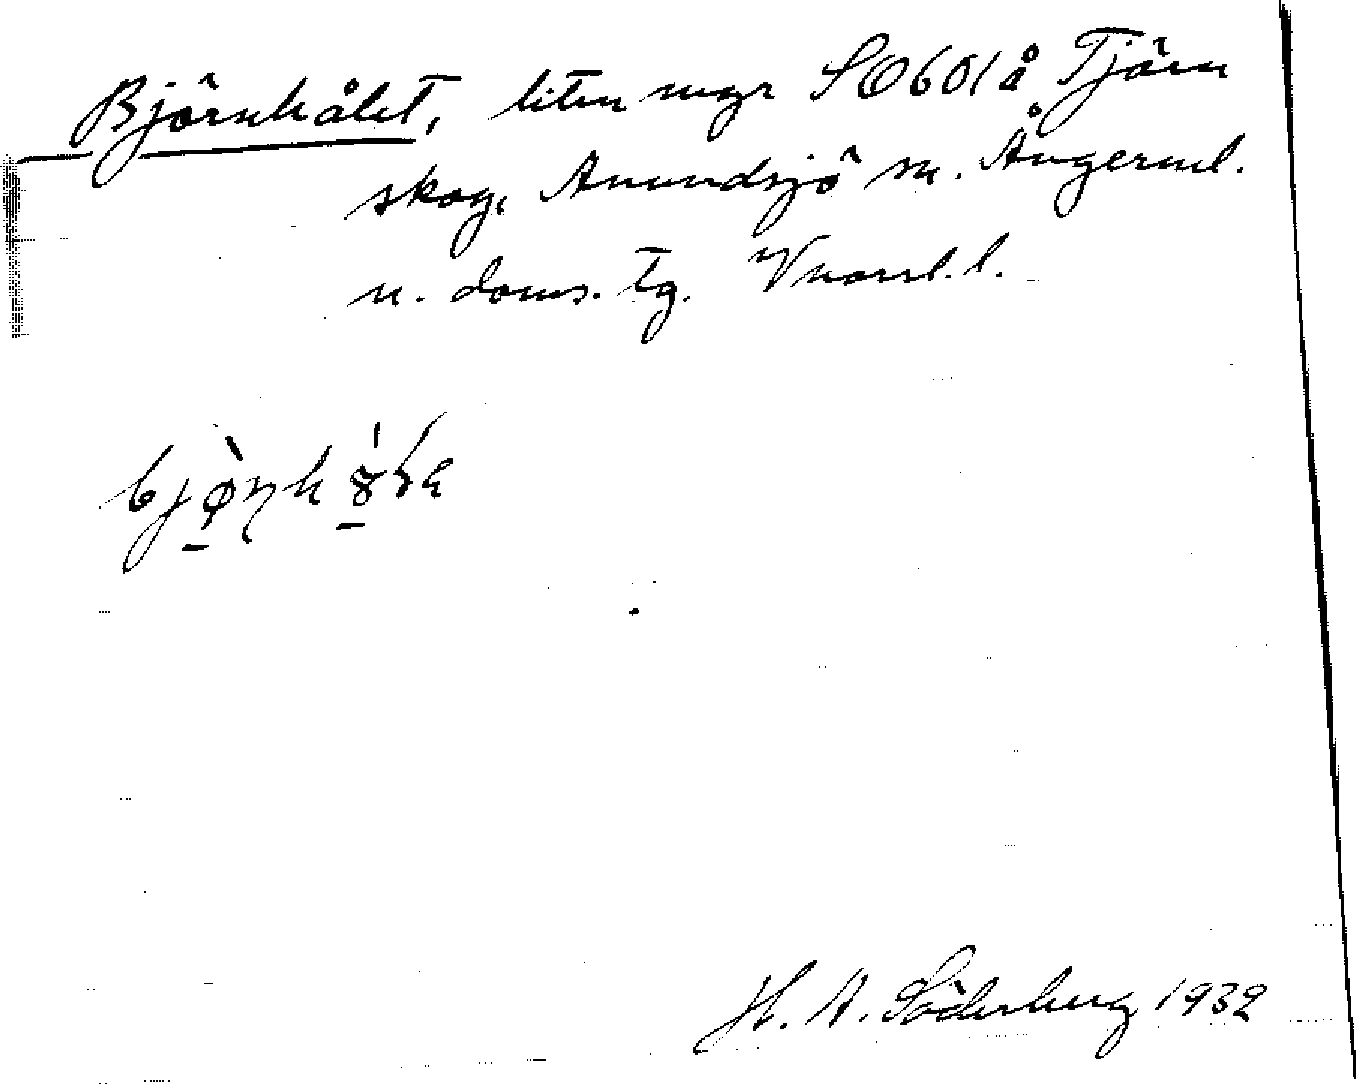 Björnhålet, liten myr SO601 å Tjärn
skog, Anundsjö sn. Ångerml.
n. doms. tg. Vnorrl. l.
H. A. Söderberg 1932